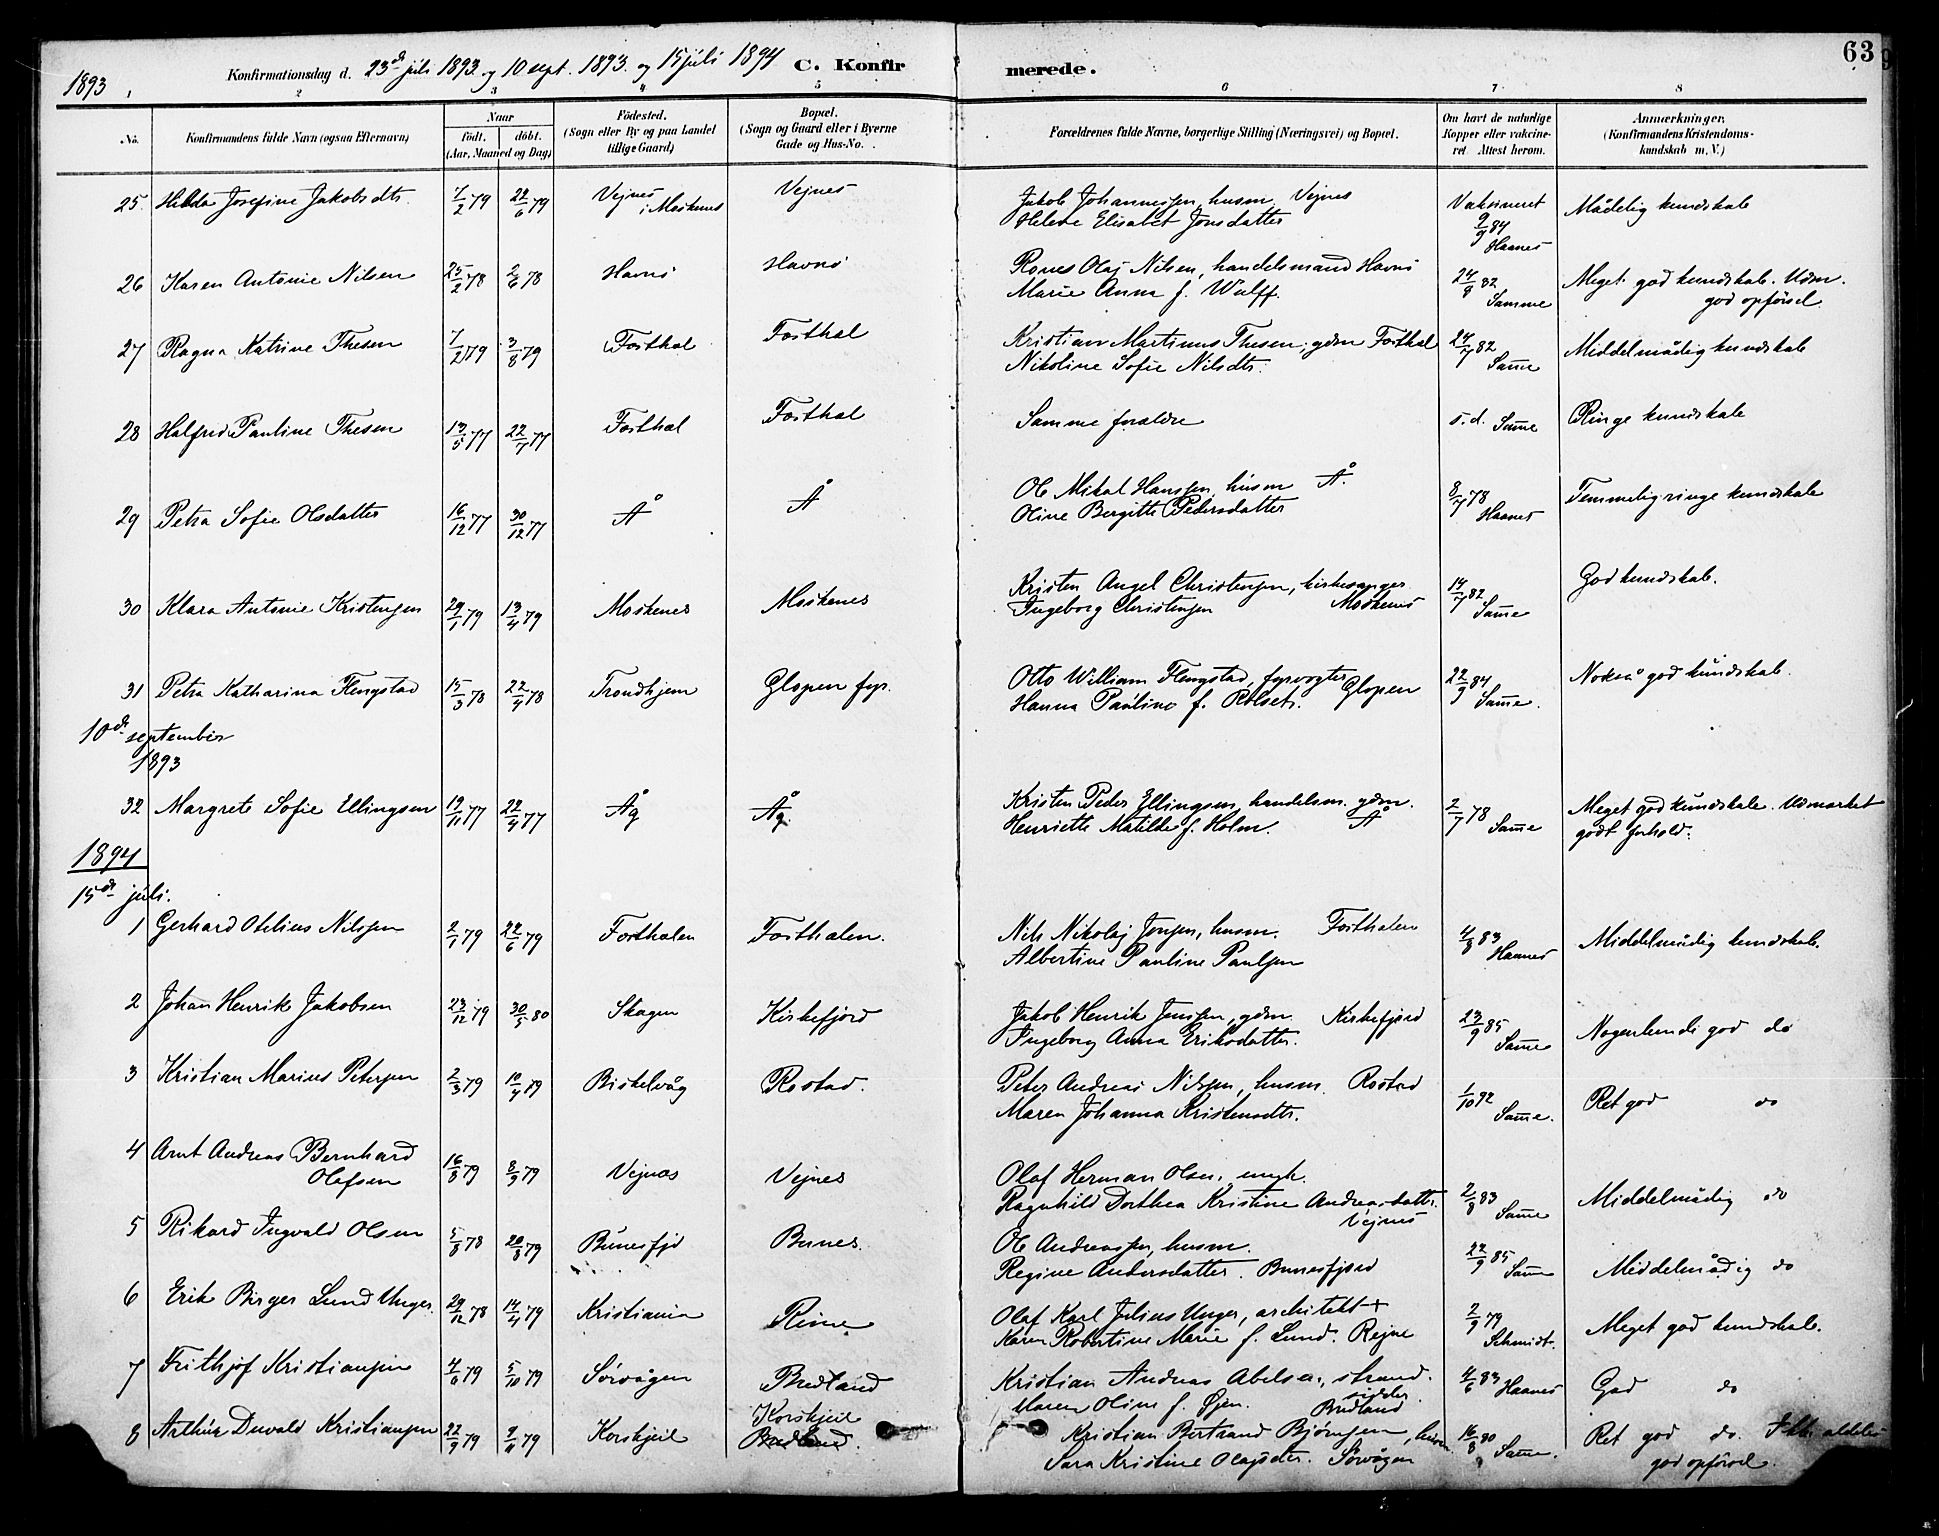 63
1893 Konfirmationsdag d. 23de juli 1893. og 10 sept. 1893. og 15 juli 1894 C. Konfirmerede.
1 2 3 4 5 6 7 8
No. Konfirmandens fulde Navn (ogsaa Efternavn) Naar födt. döbt. (Aar, Maaned og Dag) Födested. (Sogn eller By og paa Landet tillige Gaard) Bopæl. (Sogn og Gaard eller i Byerne Gade og Hus-No. Forældrenes fulde Navne, borgerlige Stilling (Næringsvei) og Bopæl. Om havt de naturlige Kopper eller vakcineret. Attest herom. Anmærkninger. (Konfirmandens Kristendomskundskab m. V.)
25. Hilda Josefine Jakobsdtr. 7/2 79 22/6 79 Vejnes i Moskenes Vejnes Jakob Johannessen, husm. Vejnes Vaksineret Mådelig kundskab
Helene Elisabet Jonsdatter 9/9 84 Haanes
26 Karen Antonie Nilsen 25/2 78 2/6 78 Havnö Havnö Rones Olaj Nilsen, handelsmand Havnö 24/8 82 Meget god kundskab. Udm.
Marie Anna f. Wulff. Samme god opförsel
27 Ragna Katrine Thesen 7/2 79 3/8 79 Forsthal Forsthal Kristian Martinus Thesen, gdm Forsthal 24/7 82 Middelmådig kundskab
Nikoline Sofie Nilsdtr. Same
28 Halfrid Pauline Thesen 13/5 77 22/7 77 Forsthal Forsthal Samme foræld​re s. d. Same Ringe kundskab
29 Petra Sofie Olsdatter 16/12 77 30/12 77 Å Å Ole Mikal Hanssen, husm Å. 8/7 78 Temmelig ringe kundskab
Oline Bergitte Pedersdatter Haanes
30 Klara Antonie Kristensen 29/1 79 13/4 79 Moskenes Moskenes Kristen Angel Christensen, kirkesanger 14/7 82 God kundskab.
Ingeborg Christensen Moskenes Same
31 Petra Katharina Flengstad 15/3 78 22/4 78 Trondhjem Glopen fyr. Otto William Flengstad, fyrvogter 22/9 84 Nokså god kundskab.
Hanna Pauline f. Rolset. Glopen Same.
10de september
1893
32 Margrete Sofie Ellingsen 19/11 77 22/4 77 Åg Åg. Kristen Peder Ellingsen, handelsm. gdm. 2/7 78 Meget god kundskab. Udmærket
Henriette Matilde f. Holm. Å Same godt forhold.
1894
15de juli.
1 Gerhard Otelius Nilssen 2/1 79 22/6 79 Forsthalen Forsthalen. Nils Nikolaj Jonsen, husm. Forsthalen 4/8 83 Middelmådig kundskab.
Albertine Pauline Paulsen Haanes
2 Johan Henrik Jakobsen 23/12 79 30/5 80 Skagen Kirkefjord Jakob Henrik Jenssen, gdm Kirkefjord 23/9 85 Nogenlunde god do
Ingeborg Anna Eriksdatter. Same
3 Kristian Marius Petersen 2/3 79 10/4 79 Biskelvåg Rostad. Peter Andreas Nilssen, husm. Rostad 1/10 92 Ret god do
Maren Johanna Kristensdtr. Same.
4 Arnt Andreas Bernhard 16/8 79 8/9 79 Vejnes Vejnes Olaf Herman Olsen, ungk.
Olafsen Ragnhild Dorthea Kristine Andreasdatter. 2/8 83 Same Middelmådig do
Vejnes
5 Rikard Ingvald Olsen 5/8 78 20/8 79 Bunesfjd Bunes. Ole Andreassen, husm. 22/9 85 Middelmådig do
Regine Andersdatter. Bunesfjord Same
6 Erik Birger Lund Unger. 29/12 78 14/4 79 Kristiania Reine Olaf Karl Julius Unger, arkitekt + 2/9 79 Meget god kundskab.
Karen Robertine Marie f. Lund. Rejne Schmidt.
7 Frithjof Kristiansen 4/6 79 5/10 79 Sörvågen Bredland Kristian Andreas Abelsen, strand- 4/6 83 Haanes God do
Maren Oline f. Øjen. sidder Bredland
8 Arthur Duvald Kristiansen 22/9 79 9/11 79 Korshjeil Korshjeil Kristian Bertrand Björnsen, husm 16/8 80 Ret god do. Ikke aldeles
Bredland. Sara Kristine Olajsdtr. Sörvågen Same. god opförsel.